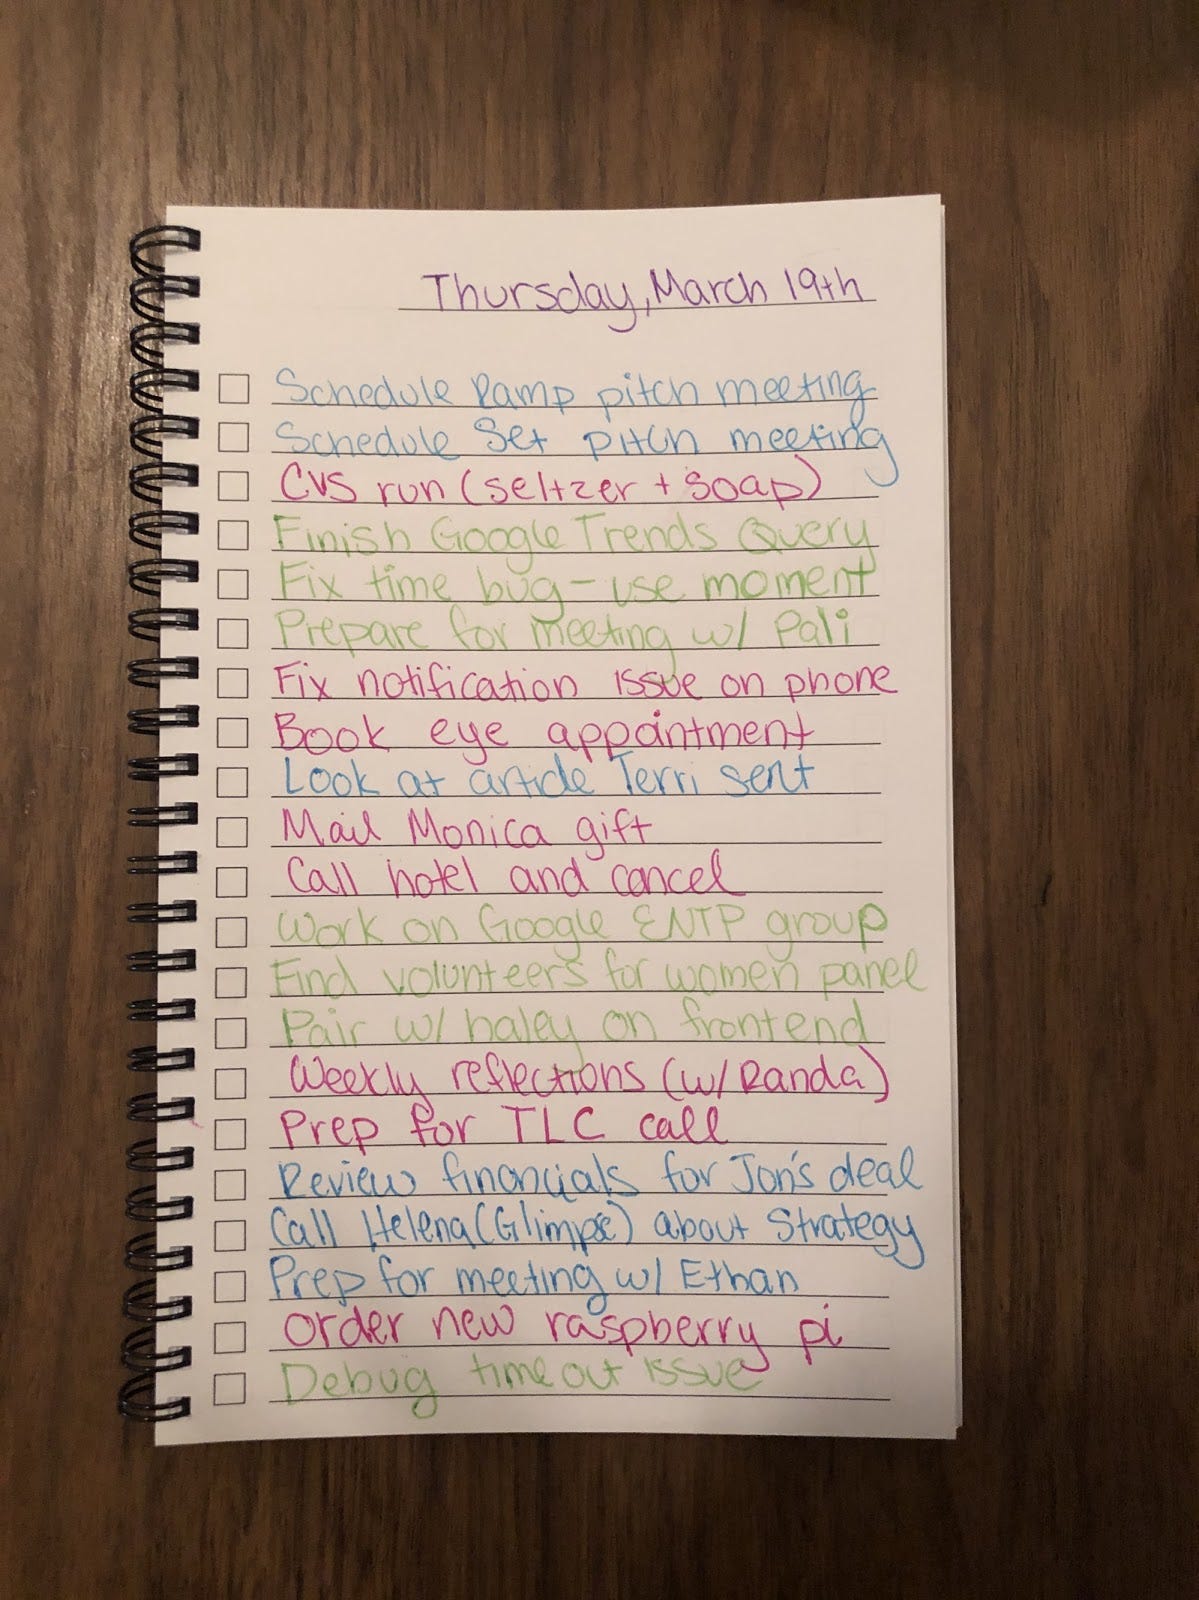 Thursday, March 19th
Schedule Ramp pitch meeting
Schedule Set pitch meeting
CVS run (seltzer + soap)
Finish Google Trends Query
Fix time bug - use moment
Prepare for meeting w/ Pali
Fix notification issue on phone
Book eye appointment
Look at article Terri sent
Mail Monica gift
Call hotel and cancel
Work on Google ENTP group
Find volunteers for women panel
Pair w/ haley on frontend
Weekly reflections (w/ Randa)
Prep for TLC call
Review financials for Jon's deal
Call Helena (Glimpse) about Strategy
Prep for meeting w/ Ethan
Order new raspberry pi
Debug time out issue